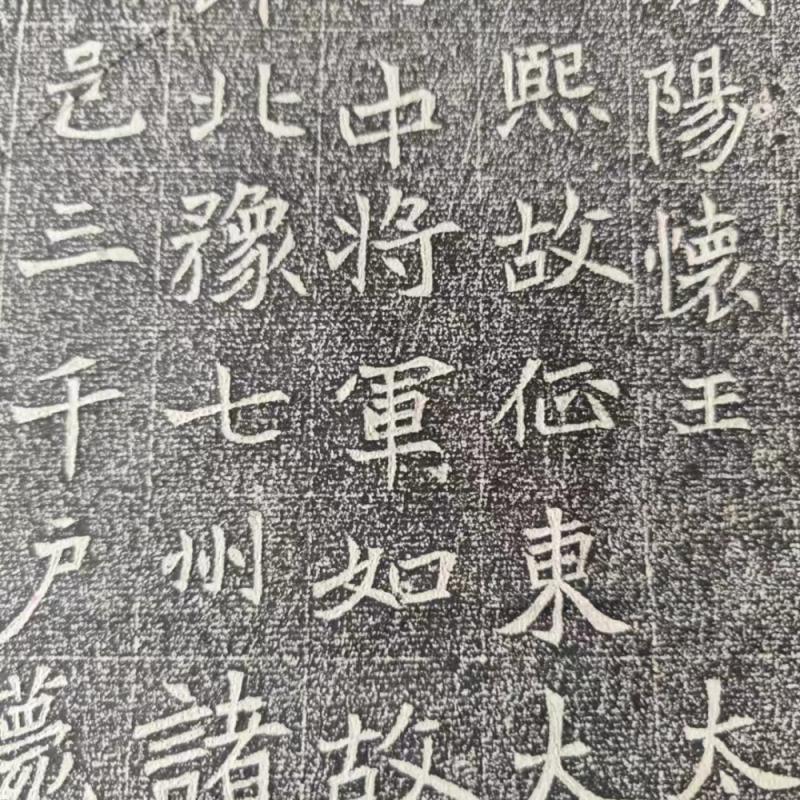 陽懷王太
熙故征東大
中將軍如故
北豫七州諸
邑三千戶薨